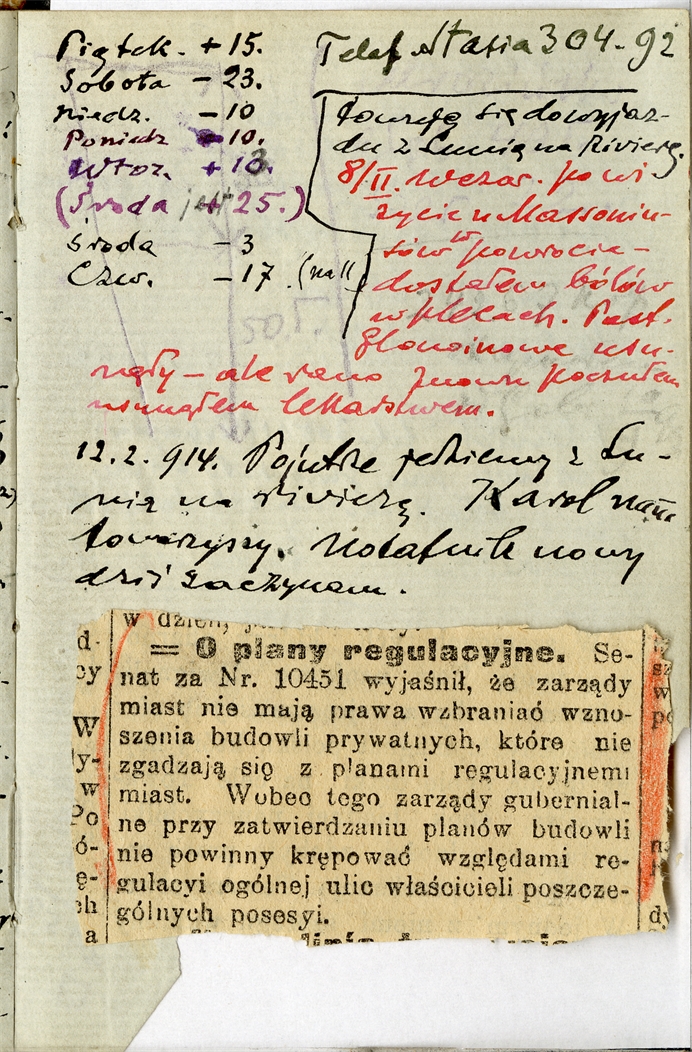 Piątek. + 15.
Sobota - 23.
niedz. - 10
Poniedz - 10.
Wtor. + 13
(Środa jest + 25.)
środa - 3
Czw. - 17 (na II
Telef. Stasia 304-92
się do wyjaz-
du z Lunią na Rivierę.
8/II. wczor. po wi
zycie u Massoniu-
sów powrocie
dostałem bólów
w plecach. Past.
Glonoinowe usu-
nęły - ale rano znowu poczułem
usunąłem lekarstwem.
12.2.914. Pojutrze jedziemy z Lu-
nią na Rivierę. Karol nam
towarzyszy. Notatnik nowy
dziś zaczynam.
w dzień,
= O plany regulacyjne. Se-
nat za Nr. 10451 wyjaśnił, że zarządy
miast nie mają prawa wzbraniać wzno-
szenia budowli prywatnych, które nie
zgadzają się z planami regulacyjnemi
miast. Wobec tego zarządy gubernial-
ne przy zatwierdzaniu planów budowli
nie powinny krępować względami re-
gulacyi ogólnej ulic właścicieli poszcze-
gólnych posesyi.